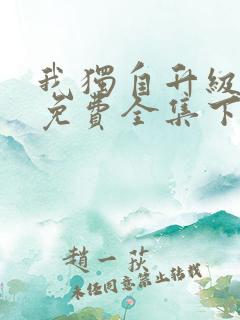 我獨自升級
免費全集下
趙一荻
未經同意禁止轉載